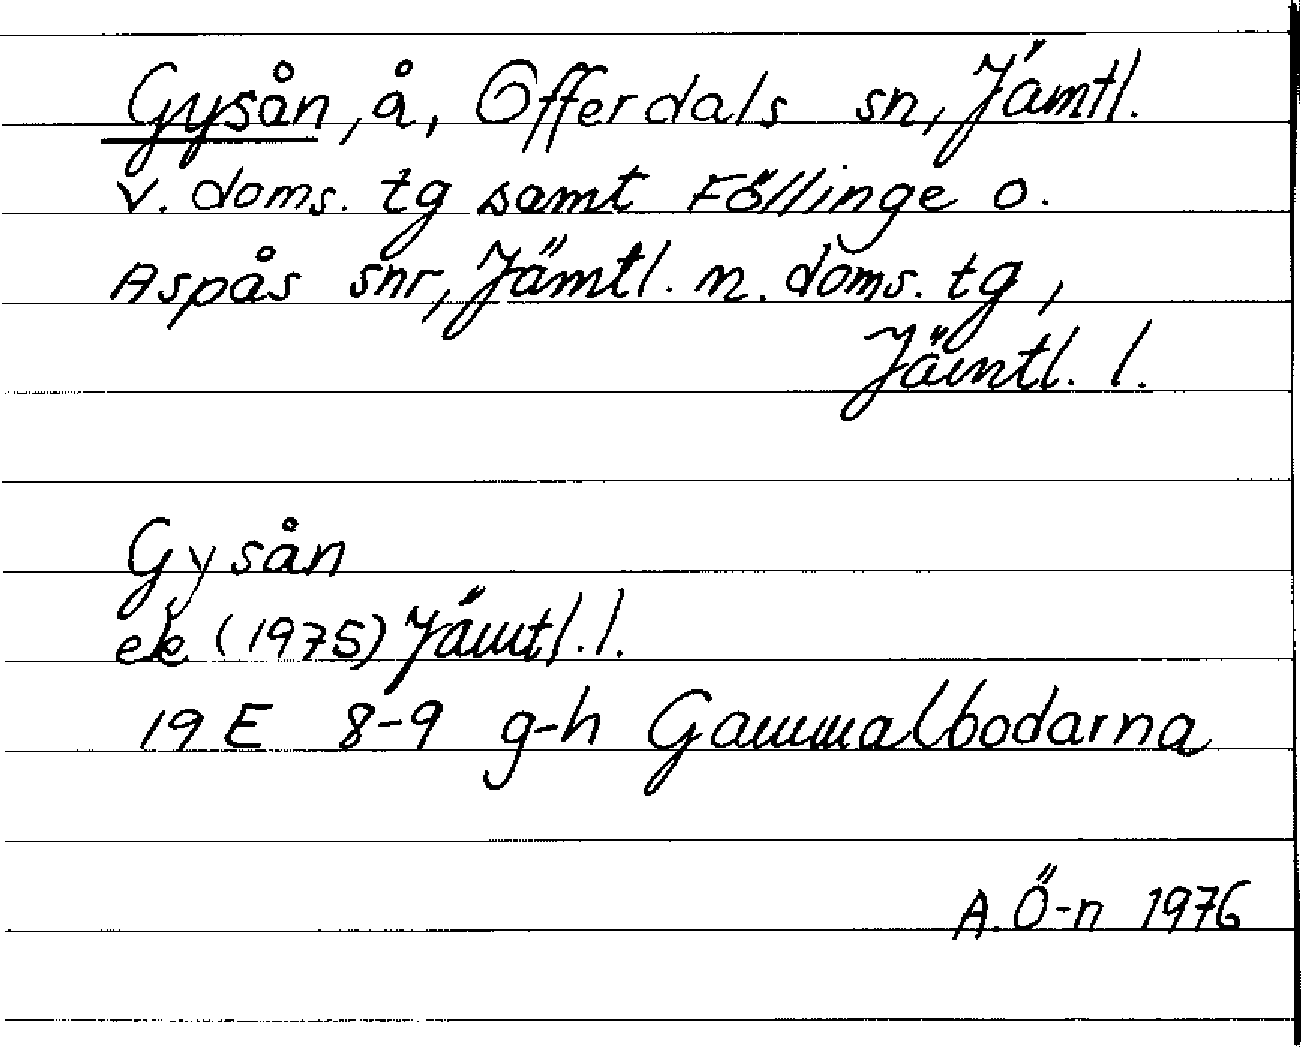 Gysån, å, Offerdals sn, Jämtl.
v. doms. tg samt Föllinge o.
Aspås snr, Jämtl. n. doms. tg,
Jämtl. l.
Gysån
ek (1975) Jämtl. l.
19 E 8-9 g-h Gammalbodarna
A. Ö-n 1976